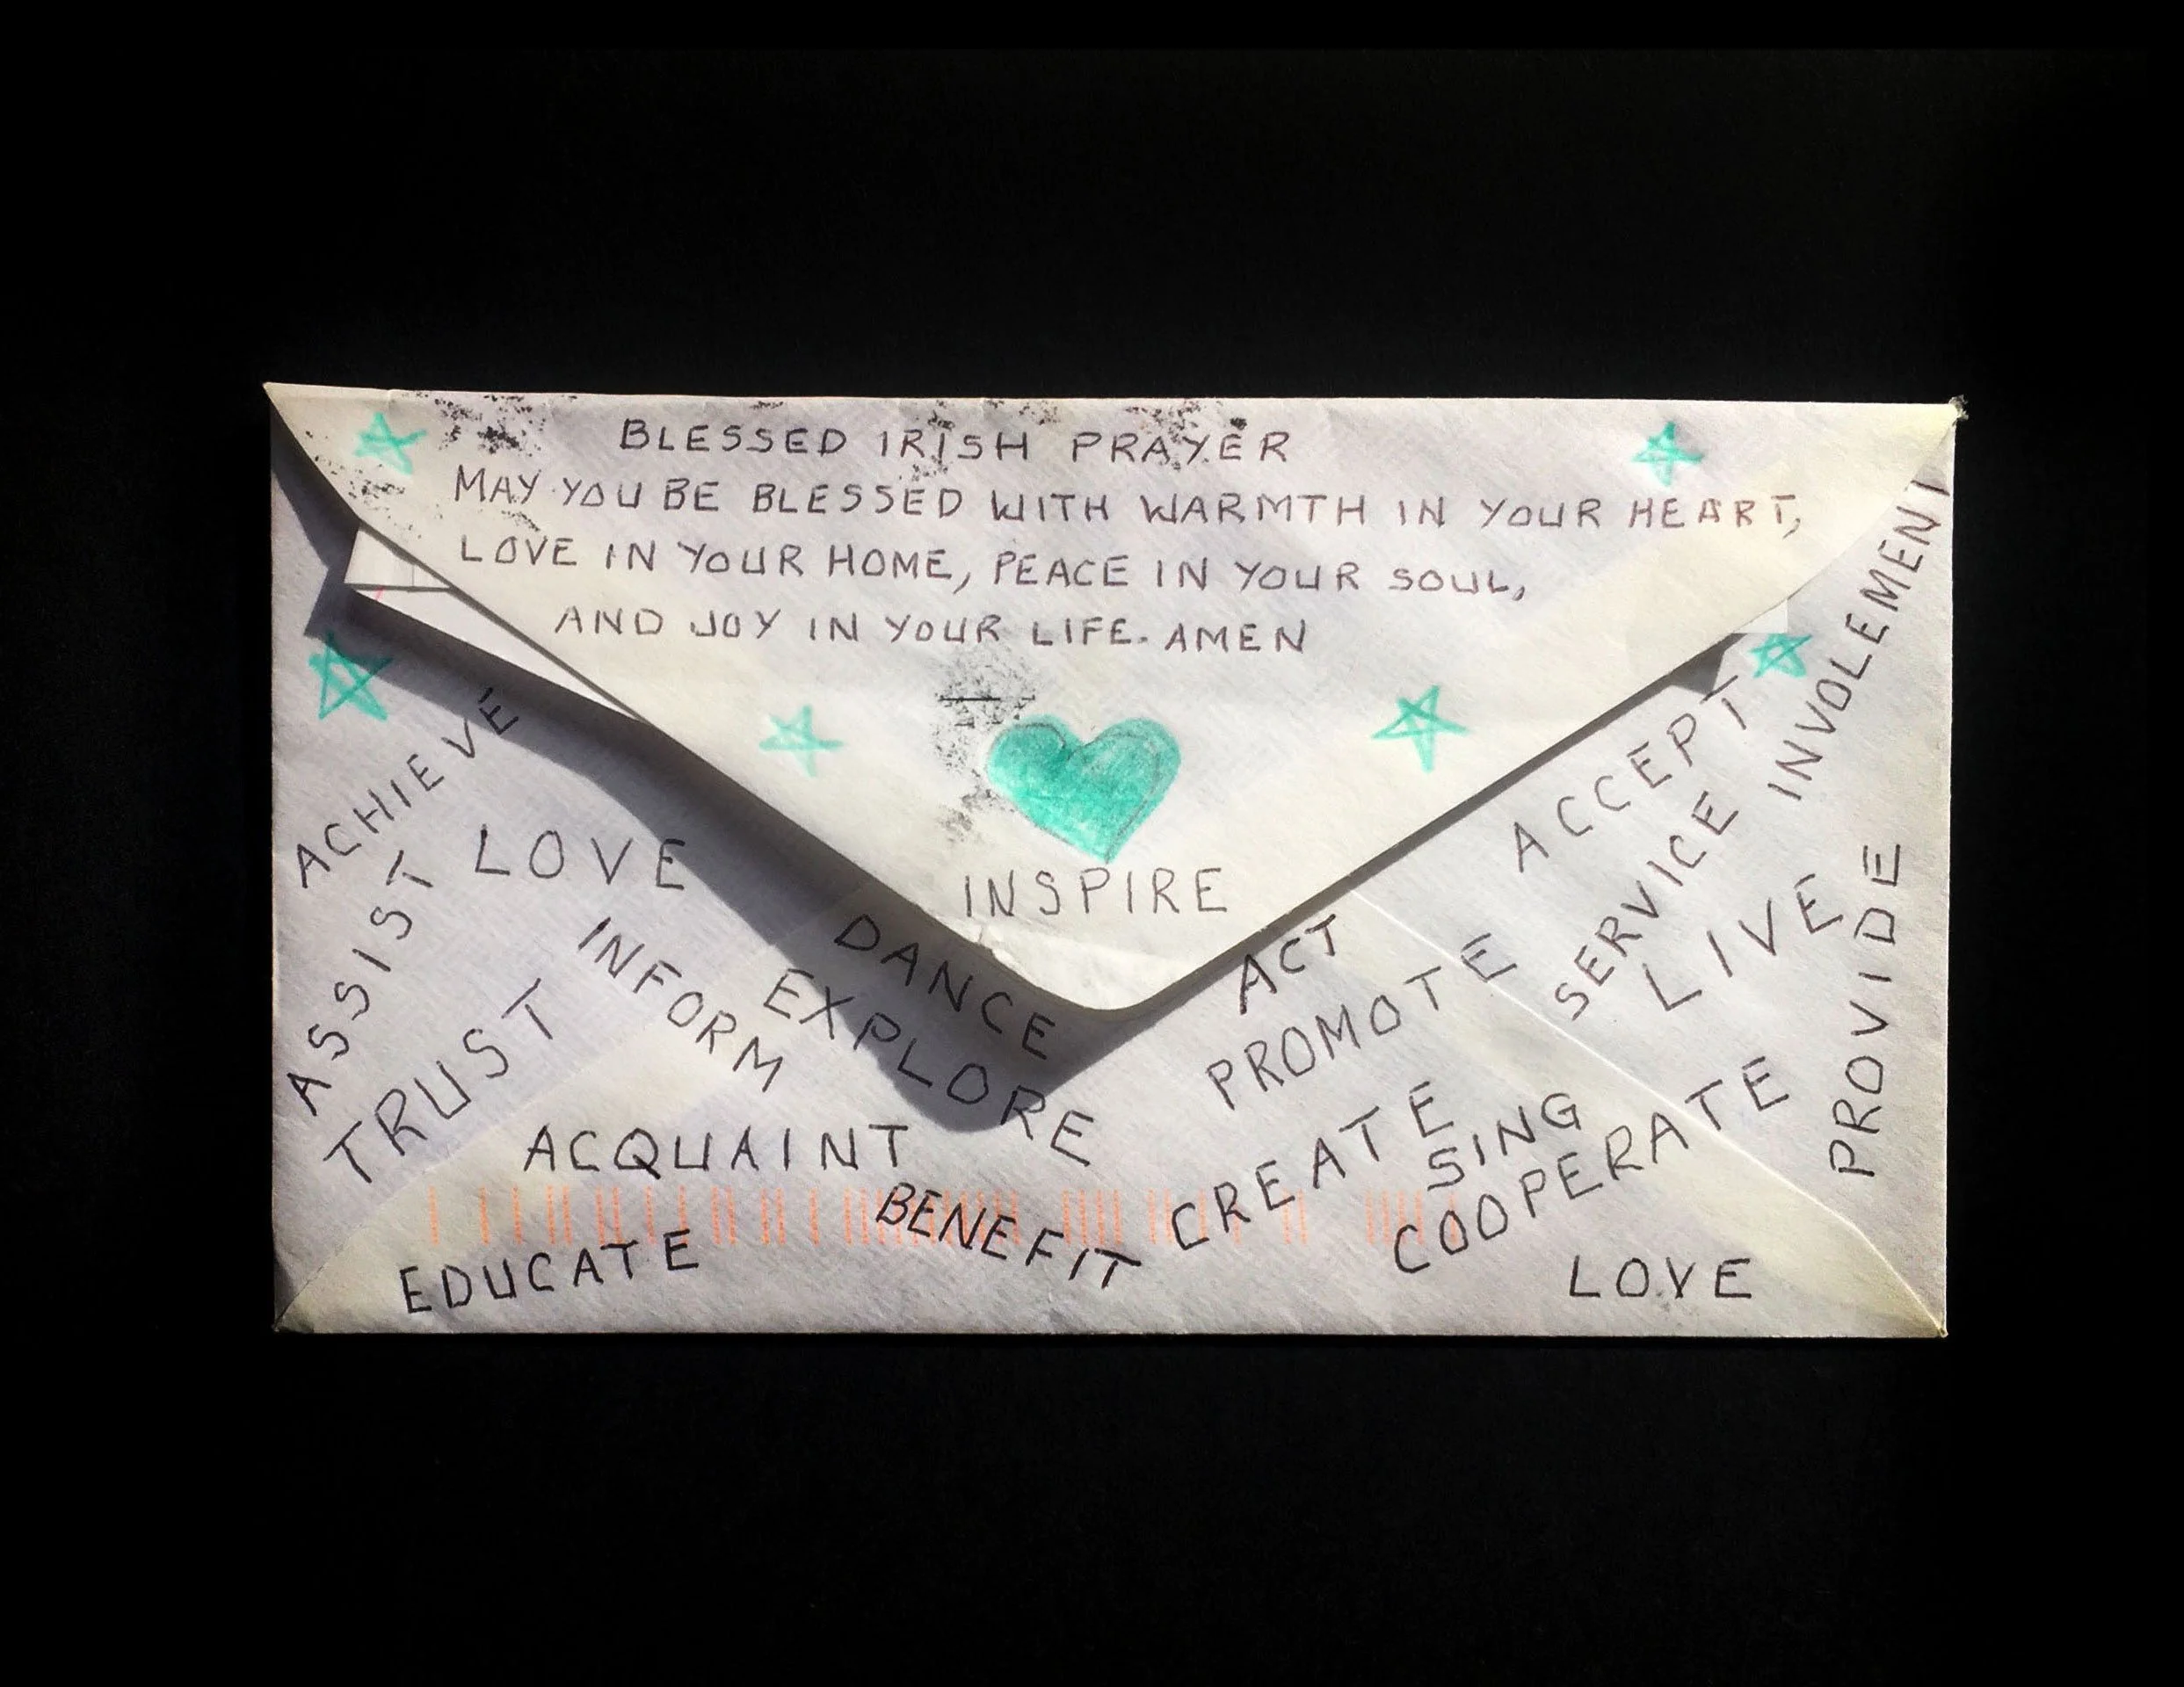 BLESSED IRISH PRAYER
MAY YOU BE BLESSED WITH WARMTH IN YOUR HEART,
LOVE IN YOUR HOME, PEACE IN YOUR SOUL,
AND JOY IN YOUR LIFE. AMEN
INSPIRE
ACHIEVE
ASSIST
LOVE
TRUST
INFORM
DANCE
EXPLORE
ACQUAINT
EDUCATE
BENEFIT
ACT
PROMOTE
CREATE
SING
COOPERATE
LOVE
ACCEPT
SERVICE
INVOLEMENT
LIVE
PROVIDE